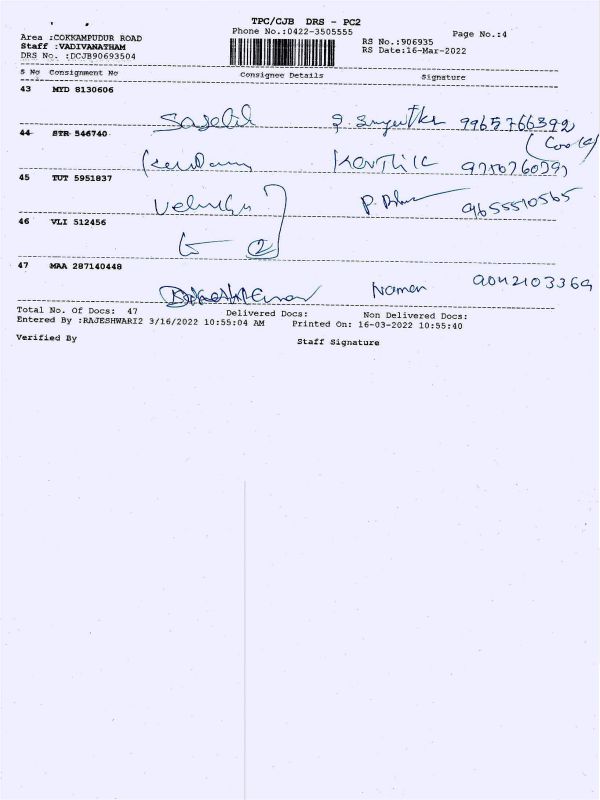 TPC/CJB DRS - PC2
Phone No.:0422-3505555
Page No.:4
Area :COKKAMPUDUR ROAD
RS No.:906935
Staff :VADIVANATHAM
RS Date:16-Mar-2022
DRS No. :DCJB90693504
S No Consignment No Consignee Details Signature
43 MYD 8130606
9965766392
44 STR 546740
Karthik
45 TUT 5951837
9655510565
46 VLI 512456
2
47 MAA 287140448
Naman 9042103369
Total No. Of Docs: 47 Delivered Docs: Non Delivered Docs:
Entered By :RAJESHWARI2 3/16/2022 10:55:04 AM Printed On: 16-03-2022 10:55:40
Verified By Staff Signature